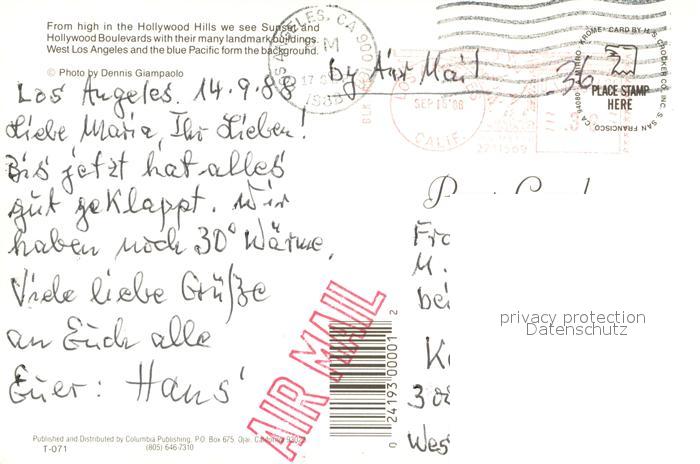 From high in the Hollywood Hills we see Sunset and
Hollywood Boulevards with their many landmark buildings.
West Los Angeles and the blue Pacific form the background.
© Photo by Dennis Giampaolo
LOS ANGELES, CA 900
by Air Mail
.36
PLACE STAMP
HERE
SEP 15'88
CALIF.
Los Angeles. 14.9.88
Liebe Maria, Ihr Lieben!
Bis jetzt hat alles
gut geklappt. Wir
haben noch 30° Wärme.
Viele liebe Grüße
an Euch alle
Euer: Hans
AIR MAIL
0 24193 00001 2
Fra
M.
bei
privacy protection
Datenschutz
Wes
Published and Distributed by Columbia Publishing, P.O. Box 675 Ojai, California 93023
T-071
(805) 646-7310